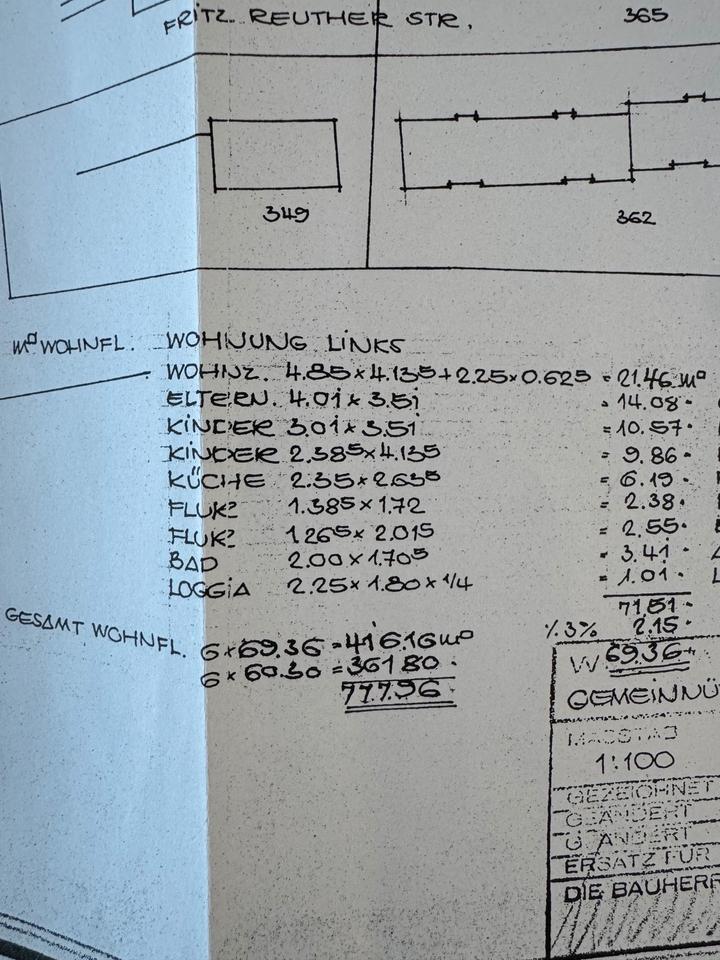 FRITZ REUTHER STR.
365
349
362
m² WOHNFL. WOHNUNG LINKS
WOHNZ. 4.85 x 4.13⁵ + 2.25 x 0.625 = 21.46 m²
ELTERN. 4.01 x 3.51 = 14.08
KINDER 3.01 x 3.51 = 10.57
KINDER 2.38⁵ x 4.135 = 9.86
KÜCHE 2.35 x 2.63⁵ = 6.19
FLUR 1.38⁵ x 1.72 = 2.38
FLUR 1.26⁵ x 2.015 = 2.55
BAD 2.00 x 1.70⁵ = 3.41
LOGGIA 2.25 x 1.80 x 1/4 = 1.01
71.51
%. 3% 2.15
69.36
GESAMT WOHNFL. 6 x 69.36 = 416.16 m²
6 x 60.30 = 361.80
777.96
GEMEINNÜ
MASSTAB
1:100
GEZEICHNET
GEÄNDERT
GEÄNDERT
ERSATZ FÜR
DIE BAUHERR